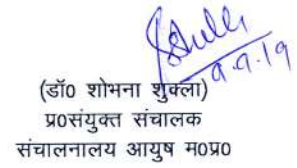 9.9.19
(डॉ0 शोभना शुक्ला)
प्र0संयुक्त संचालक
संचालनालय आयुष म0प्र0